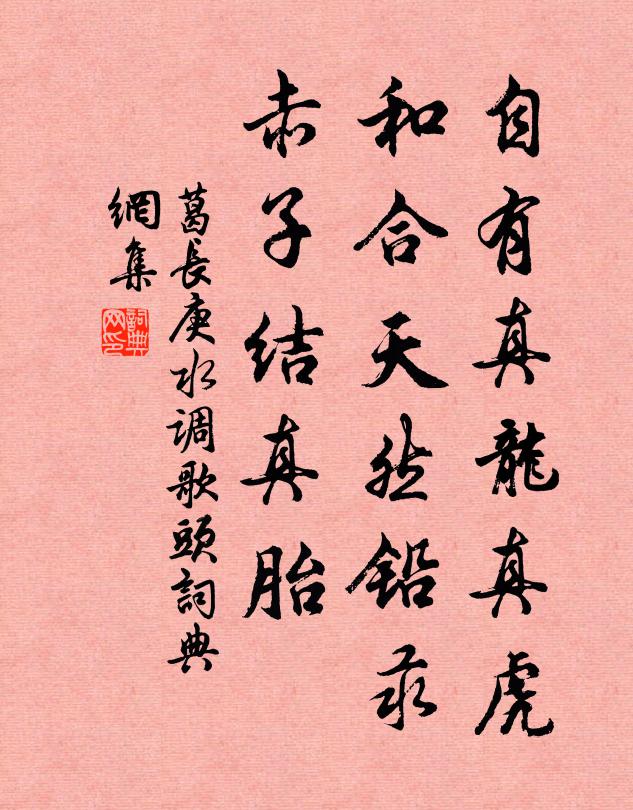 自有真龍真虎
和合天然铅汞
赤子结真胎
葛長庚水调歌頭詞典
網集
詞典网印